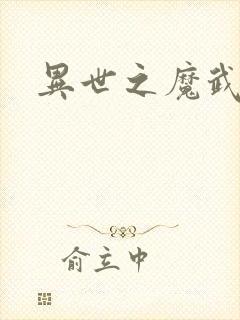 異世之魔武
俞立中